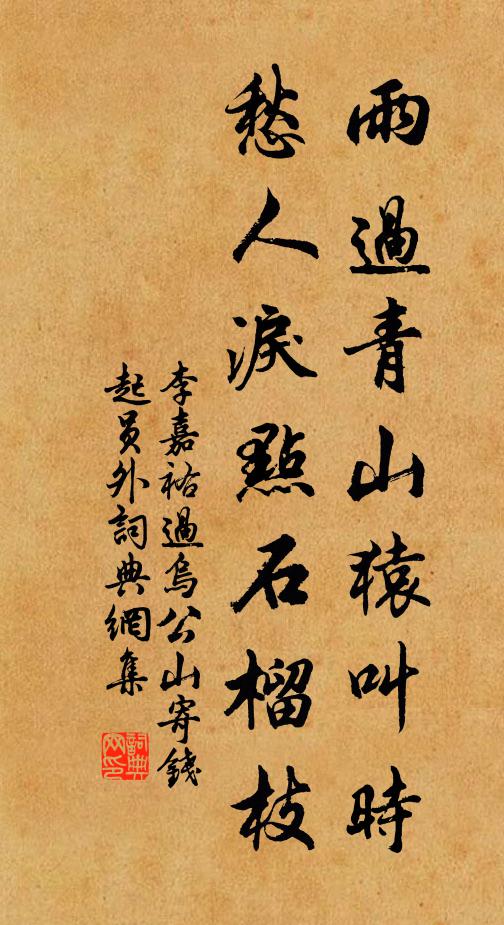 雨過青山猿叫時
愁人淚點石榴枝
李嘉祐過烏公山寄錢
起員外詞典網集
詞典
网印